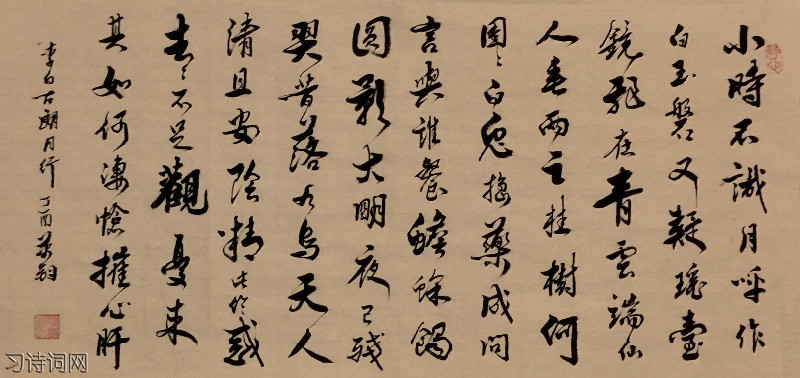 小時不識月呼作
白玉磐又疑瑤臺
鏡飛在青雲端仙
人垂兩足桂樹何
團〻白兔搗藥成問
言與誰餐蟾蜍蝕
圓影大明夜已殘
羿昔落九烏天人
清且安陰精此淪惑
去〻不足觀憂來
其如何悽愴摧心肝
李白古朗月行 丁酉
习诗词网